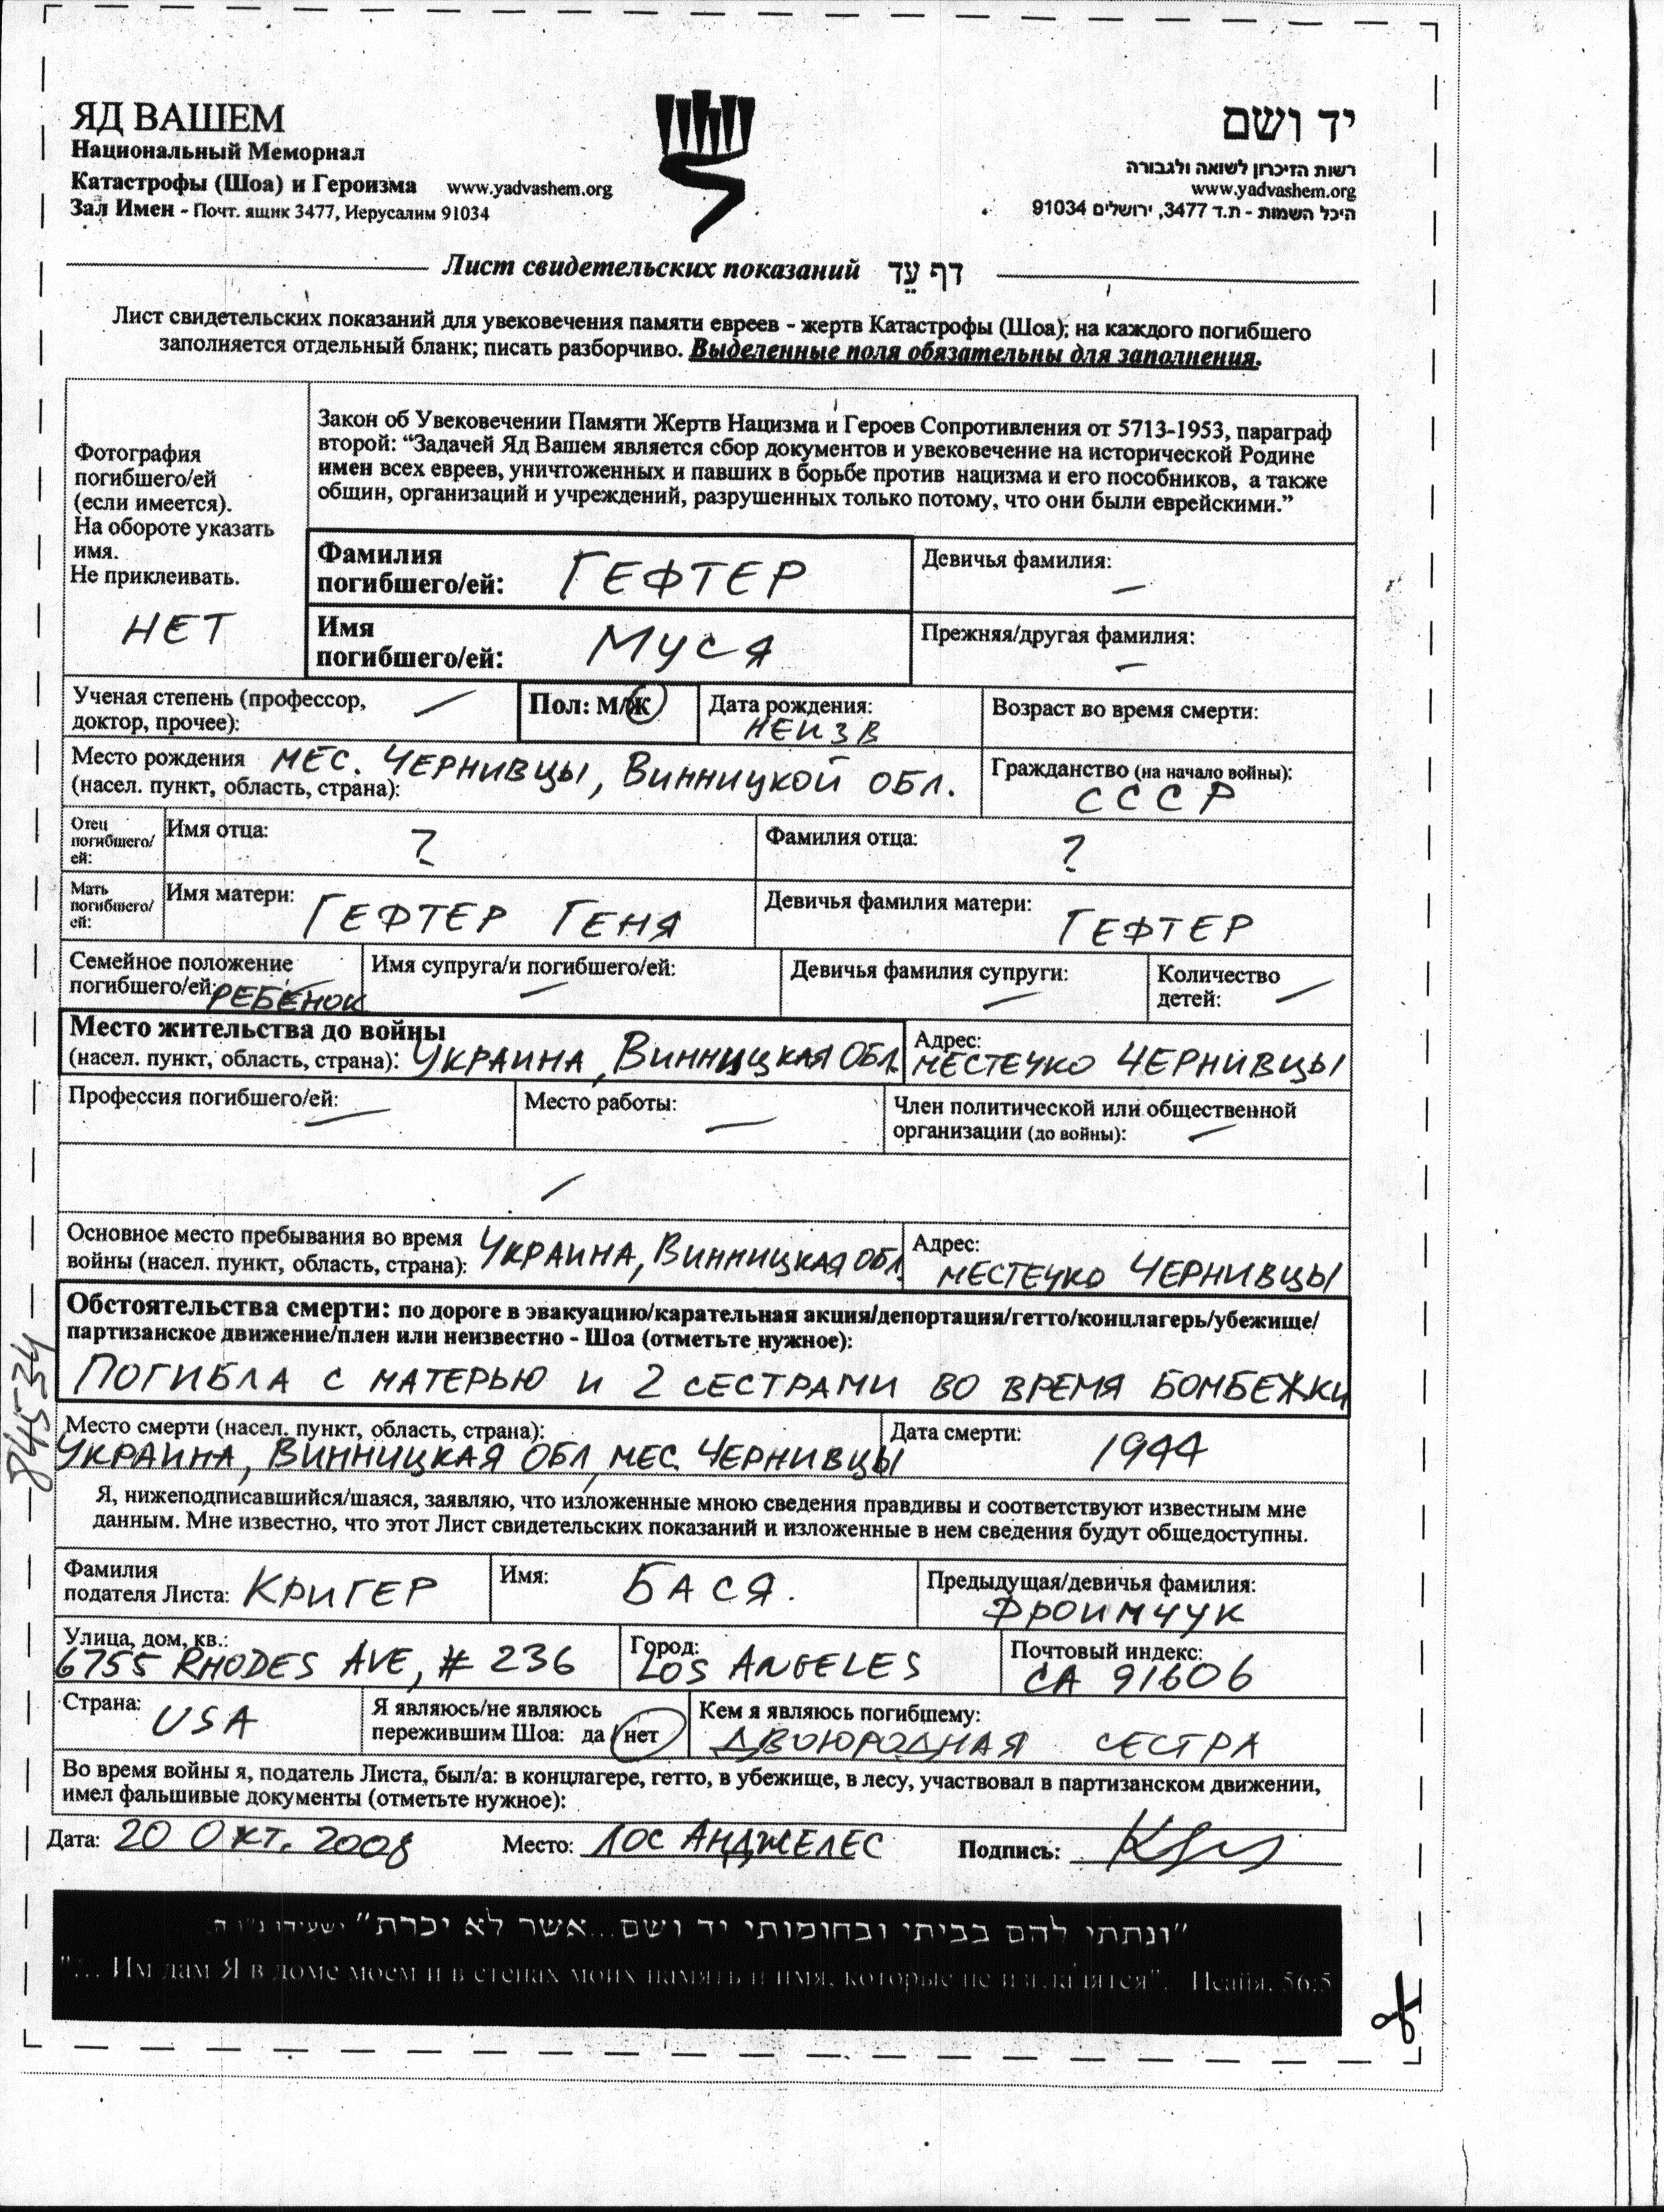 ЯД ВАШЕМ
Национальный Мемориал
Катастрофы (Шоа) и Героизма www.yadvashem.org
Зал Имен - Почт. ящик 3477, Иерусалим 91034
יד ושם
רשות הזיכרון לשואה ולגבורה
www.yadvashem.org
היכל השמות - ת.ד 3477, ירושלים 91034
Лист свидетельских показаний דף עֵד
Лист свидетельских показаний для увековечения памяти евреев - жертв Катастрофы (Шоа); на каждого погибшего
заполняется отдельный бланк; писать разборчиво. Выделенные поля обязательны для заполнения.
Фотография
погибшего/ей
(если имеется).
На обороте указать
имя.
Не приклеивать.
НЕТ
Закон об Увековечении Памяти Жертв Нацизма и Героев Сопротивления от 5713-1953, параграф
второй: “Задачей Яд Вашем является сбор документов и увековечение на исторической Родине
имен всех евреев, уничтоженных и павших в борьбе против нацизма и его пособников, а также
общин, организаций и учреждений, разрушенных только потому, что они были еврейскими.”
Фамилия
погибшего/ей: ГЕФТЕР
Девичья фамилия: —
Имя
погибшего/ей: МУСЯ
Прежняя/другая фамилия: —
Ученая степень (профессор, —
доктор, прочее):
Пол: М/Ж
Дата рождения:
НЕИЗВ
Возраст во время смерти:
Место рождения МЕС. ЧЕРНИВЦЫ, ВИННИЦКОЙ ОБЛ.
(насел. пункт, область, страна):
Гражданство (на начало войны):
СССР
Отец
погибшего/
ей:
Имя отца: ?
Фамилия отца: ?
Мать
погибшего/
ей:
Имя матери: ГЕФТЕР ГЕНЯ
Девичья фамилия матери: ГЕФТЕР
Семейное положение
погибшего/ей: РЕБЕНОК
Имя супруга/и погибшего/ей: —
Девичья фамилия супруги: —
Количество
детей: —
Место жительства до войны
(насел. пункт, область, страна): УКРАИНА, ВИННИЦКАЯ ОБЛ.
Адрес:
МЕСТЕЧКО ЧЕРНИВЦЫ
Профессия погибшего/ей: —
Место работы: —
Член политической или общественной
организации (до войны): —
—
Основное место пребывания во время
войны (насел. пункт, область, страна): УКРАИНА, ВИННИЦКАЯ ОБЛ.
Адрес:
МЕСТЕЧКО ЧЕРНИВЦЫ
Обстоятельства смерти: по дороге в эвакуацию/карательная акция/депортация/гетто/концлагерь/убежище/
партизанское движение/плен или неизвестно - Шоа (отметьте нужное):
ПОГИБЛА С МАТЕРЬЮ И 2 СЕСТРАМИ ВО ВРЕМЯ БОМБЕЖКИ
Место смерти (насел. пункт, область, страна):
УКРАИНА, ВИННИЦКАЯ ОБЛ, МЕС. ЧЕРНИВЦЫ
Дата смерти: 1944
845534
Я, нижеподписавшийся/шаяся, заявляю, что изложенные мною сведения правдивы и соответствуют известным мне
данным. Мне известно, что этот Лист свидетельских показаний и изложенные в нем сведения будут общедоступны.
Фамилия
подателя Листа: КРИГЕР
Имя: БАСЯ.
Предыдущая/девичья фамилия:
ФРОИМЧУК
Улица, дом, кв.:
6755 RHODES AVE, # 236
Город:
LOS ANGELES
Почтовый индекс:
CA 91606
Страна: USA
Я являюсь/не являюсь
пережившим Шоа: да / нет
Кем я являюсь погибшему:
ДВОЮРОДНАЯ СЕСТРА
Во время войны я, податель Листа, был/а: в концлагере, гетто, в убежище, в лесу, участвовал в партизанском движении,
имел фальшивые документы (отметьте нужное):
Дата: 20 ОКТ. 2008 Место: ЛОС АНДЖЕЛЕС Подпись:
"ונתתי להם בביתי ובחומותי יד ושם...אשר לא יכרת" ישעיהו נ"ו ה
"... Им дам Я в доме моем и в стенах моих память и имя, которые не изгладятся". Исайя, 56:5